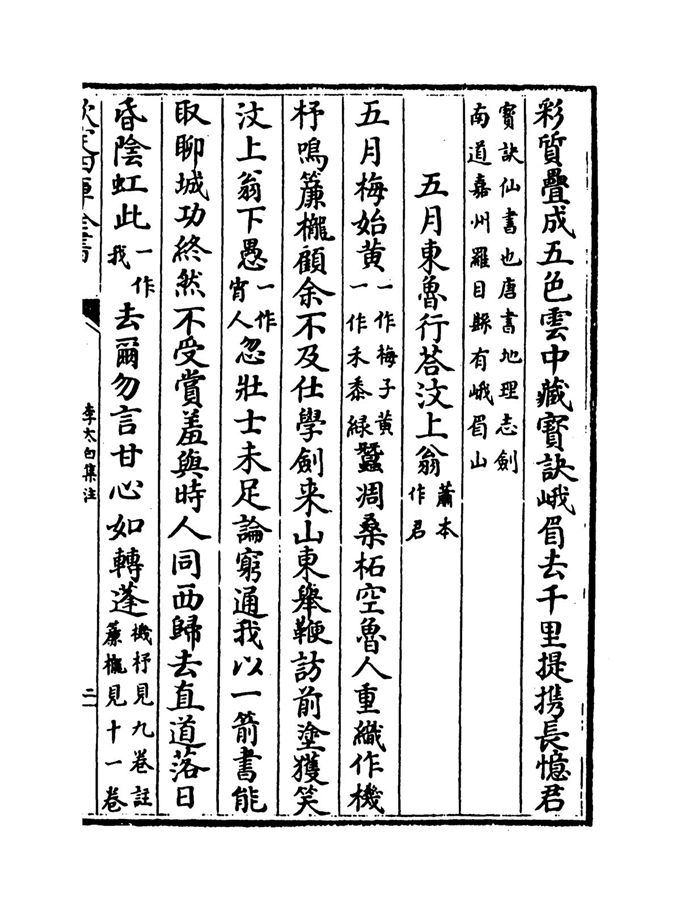 彩質疊成五色雲中藏寳訣峨眉去千里提携長憶君
寳訣仙書也唐書地理志劍
南道嘉州羅目縣有峨眉山
五月東魯行荅汶上翁
蕭本
作君
五月梅始黄
一作梅子黄
一作禾黍緑
蠶凋桑柘空魯人重織作機
杼鳴簾櫳顧余不及仕學劍来山東舉鞭訪前塗獲笑
汶上翁下愚
一作
宵人
忽壯士未足論窮通我以一箭書能
取聊城功終然不受賞羞與時人同西歸去直道落日
昏陰虹此
一作
我
去爾勿言甘心如轉蓬
機杼見九卷註
簾櫳見十一卷
李太白集注
二